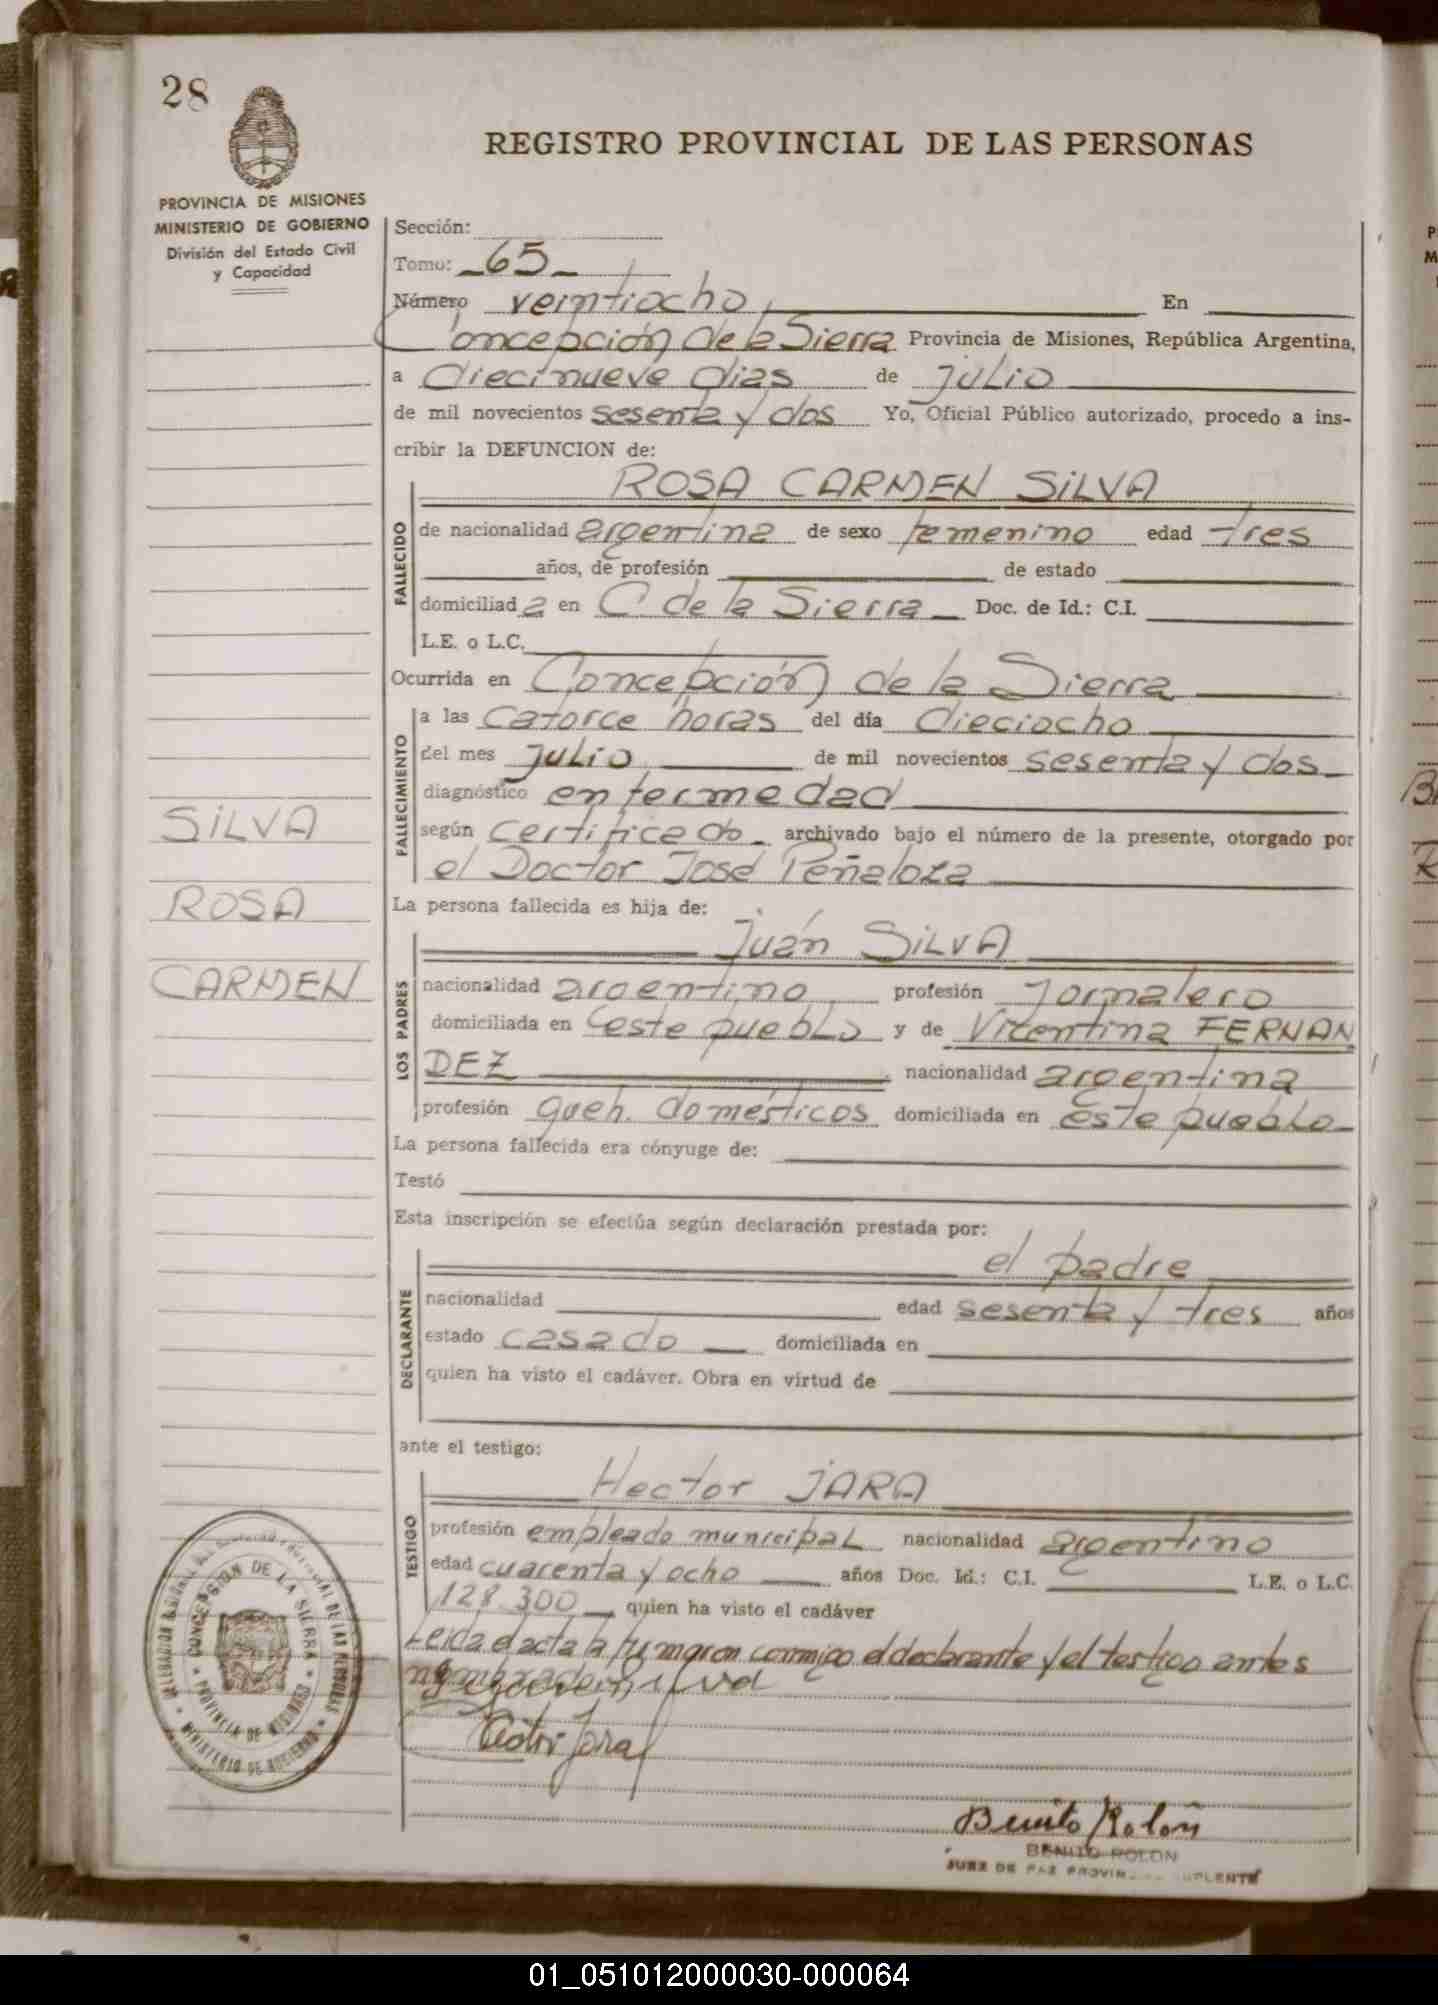 28
REGISTRO PROVINCIAL DE LAS PERSONAS
PROVINCIA DE MISIONES
MINISTERIO DE GOBIERNO
División del Estado Civil
y Capacidad
Sección:
Tomo: _65_
Número veintiocho En
Concepción de la Sierra Provincia de Misiones, República Argentina,
a diecinueve dias de julio
de mil novecientos sesenta y dos Yo, Oficial Público autorizado, procedo a ins-
cribir la DEFUNCION de:
ROSA CARMEN SILVA
FALLECIDO
de nacionalidad argentina de sexo femenino edad tres
años, de profesión de estado
domiciliada en C de la Sierra _ Doc. de Id.: C.I.
L.E. o L.C.
Ocurrida en Concepción de la Sierra
FALLECIMIENTO
a las catorce horas del día dieciocho
del mes julio de mil novecientos sesenta y dos
diagnóstico enfermedad
según certificado _ archivado bajo el número de la presente, otorgado por
el Doctor José Peñaloza
SILVA
ROSA
CARMEN
La persona fallecida es hija de:
Juán SILVA
LOS PADRES
nacionalidad argentino profesión Jornalero
domiciliada en este pueblo y de Vicentina FERNAN
DEZ nacionalidad argentina
profesión queh. domésticos domiciliada en este pueblo
La persona fallecida era cónyuge de:
Testó
Esta inscripción se efectúa según declaración prestada por:
el padre
DECLARANTE
nacionalidad edad sesenta y tres años
estado casado _ domiciliada en
quien ha visto el cadáver. Obra en virtud de
ante el testigo:
Hector JARA
TESTIGO
profesión empleado municipal nacionalidad argentino
edad cuarenta y ocho años Doc. Id.: C.I. L.E. o L.C.
128.300 quien ha visto el cadáver
Leida el acta la firmaron conmigo el declarante y el testigo antes
Jara
CONCEPCION DE LA SIERRA
PROVINCIA DE MISIONES
MINISTERIO DE GOBIERNO
Benito Rolon
BENITO ROLON
JUEZ DE PAZ SUPLENTE
01_051012000030-000064